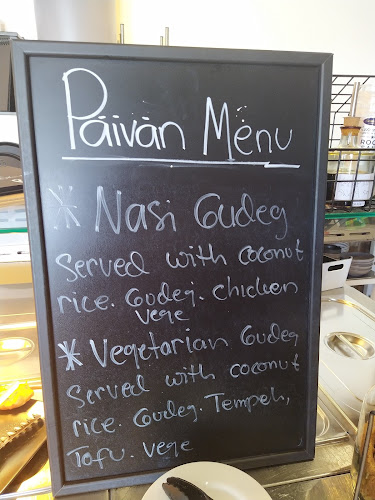 Páivàn Menu
* Nasi Gudeg
Served with coconut
rice. Gudeg. Chicken
vege
* Vegetarian Gudeg
Served with coconut
rice. Gudeg. Tempeh,
Tofu. vege